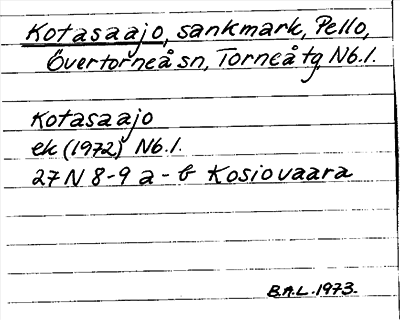 Kotasaajo, sankmark, Pello,
Övertorneå sn, Torneå tg Nb.l.
Kotasaajo
ek (1972) Nb.l.
27 N 8-9 a-b Kosiovaara
B.A.L. 1973.